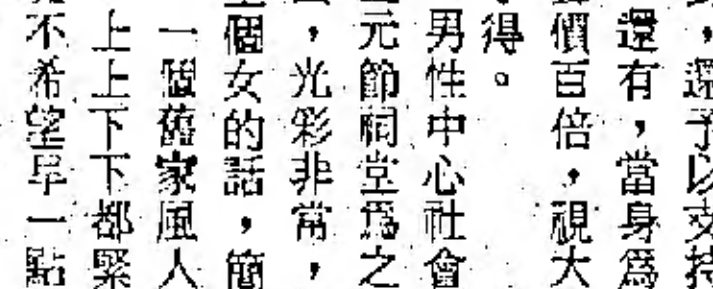 ，還予以支持
還有，當身爲
價百倍，視大
得。
男性中心社會
元節祠堂爲之
，光彩非常，
個女的話，簡
一個舊家風人
上上下下都緊
不希望早一點